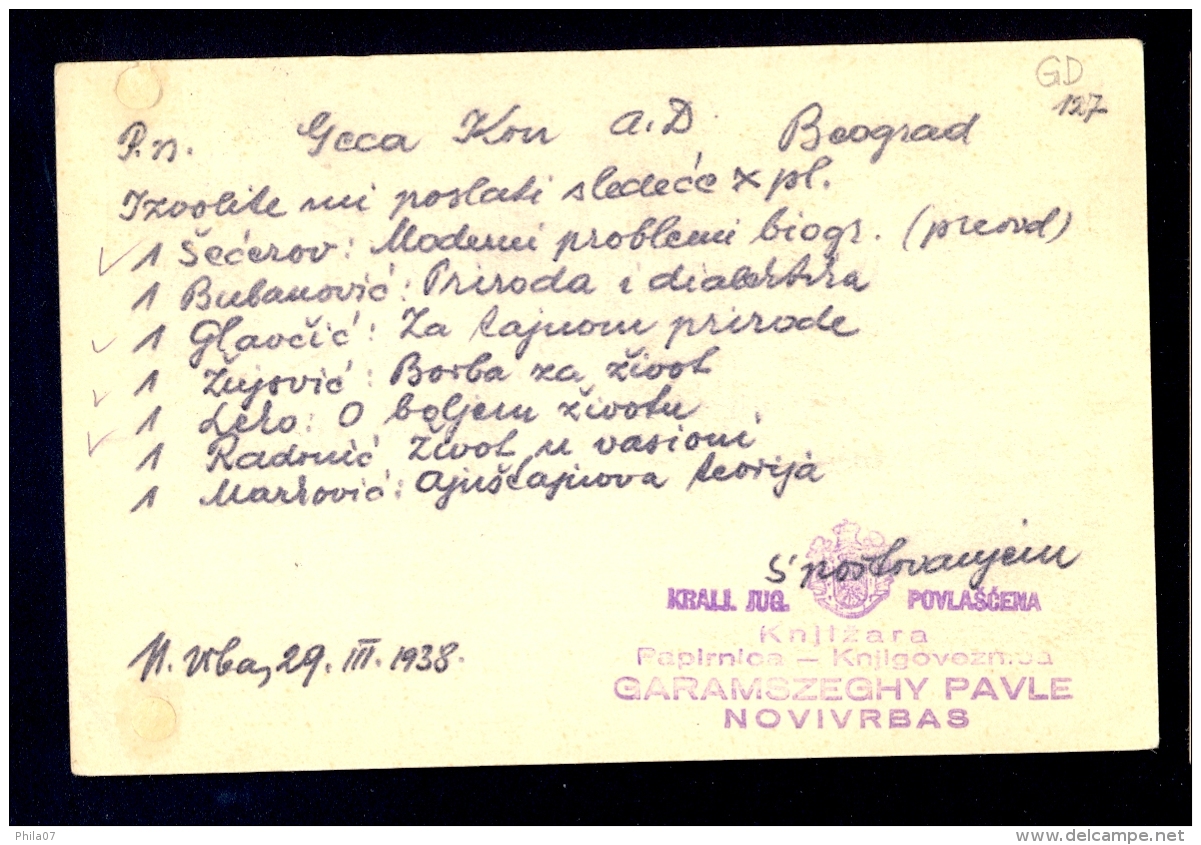 GD
127
P.n. Geca Kon A.D. Beograd
Izvolite mi poslati sledeće x pl.
1 Šećerov: Moderni problemi biogr. (preovd)
1 Bubanović: Priroda i dialektika
1 Glavčić: Za tajnom prirode
1 Žujović: Borba za život
1 Leko: O boljem životu
1 Radonić Život u vasioni
1 Marković: Ajnštajnova teorija
S poštovanjem
KRALJ. JUG. POVLAŠĆENA
Knjižara
Papirnica – Knjigovežnica
GARAMSZEGHY PAVLE
NOVIVRBAS
N. Vrbas, 29. III. 1938.
Phila07
www.delcampe.net